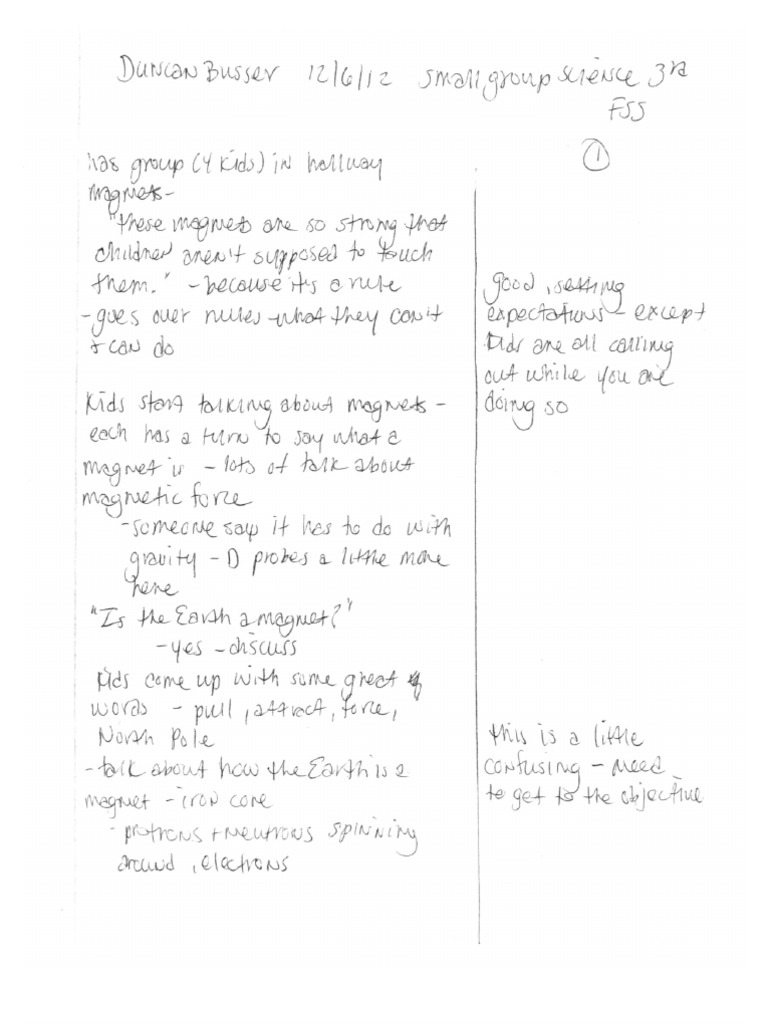 Duncan Busser 12/6/12 small group science 3rd
FSS
1
has group (4 kids) in hallway
magnets-
"these magnets are so strong that
children aren't supposed to touch
them." - because it's a rule
- goes over rules - what they can't
+ can do
good, setting
expectations - except
kids are all calling
out while you are
doing so
Kids start talking about magnets -
each has a turn to say what a
magnet is - lots of talk about
magnetic force
- someone says it has to do with
gravity - D probes a little more
here
"Is the Earth a magnet?"
- yes - discuss
Kids come up with some great
words - pull, attract, force,
North Pole
- talk about how the Earth is a
magnet - iron core
- protrons + neutrons spinning
around, electrons
this is a little
confusing - need
to get to the objective